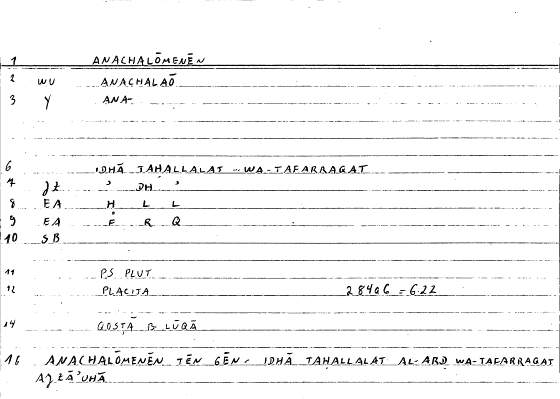 1 ANACHALŌMENĒN
2 WU ANACHALAŌ
3 Y ANA-
6 IDHĀ TAḤALLALAT - WA-TAFARRAGAT
7 ʾ DH ʾ
8 EA Ḥ L L
9 EA F R Q
10 SB
11 PS PLUT
12 PLACITA 284a6 = 6.22
14 QOSṬĀ B LŪQĀ
16 ANACHALŌMENĒN TĒN GĒN - IDHĀ TAḤALLALAT AL-ARḌ WA-TAFARRAGAT